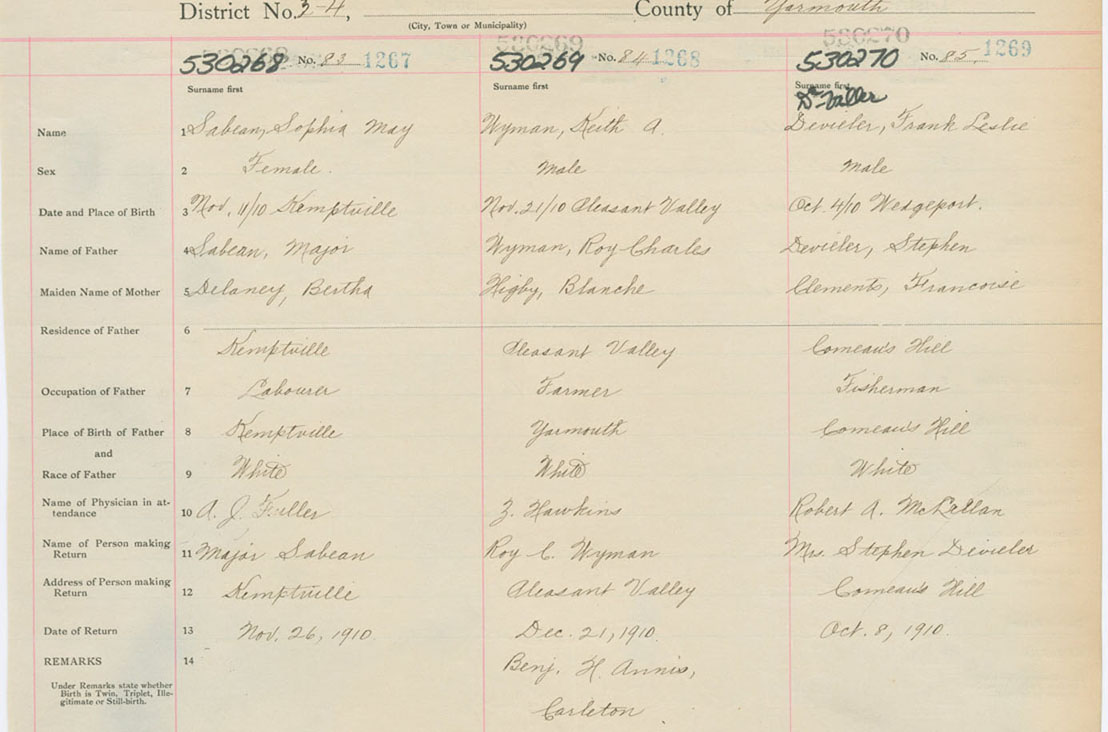 District No. 3-4, County of Yarmouth
(City, Town or Municipality)
530268 530269 530270
530268 No. 83 1267 530269 No. 84 1268 530270 No. 85. 1269
Surname first Surname first Surname first
Name 1 Sabean, Sophia May Wyman, Keith A. Devieler, Frank Leslie
Sex 2 Female. Male Male
Date and Place of Birth 3 Nov. 11/10 Kemptville Nov. 21/10 Pleasant Valley Oct. 4/10 Wedgeport.
Name of Father 4 Sabean, Major Wyman, Roy Charles Devieler, Stephen
Maiden Name of Mother 5 Delaney, Bertha Higby, Blanche Clements, Francoise
Residence of Father 6
Kemptville Pleasant Valley Comeau's Hill
Occupation of Father 7 Labourer Farmer Fisherman
Place of Birth of Father 8 Kemptville Yarmouth Comeau's Hill
and
Race of Father 9 White White White
Name of Physician in at-
tendance 10 A. J. Fuller Z. Hawkins Robert A. McKellan
Name of Person making
Return 11 Major Sabean Roy C. Wyman Mrs. Stephen Devieler
Address of Person making
Return 12 Kemptville Pleasant Valley Comeau's Hill
Date of Return 13 Nov. 26, 1910 Dec. 21, 1910. Oct. 8, 1910.
REMARKS 14 Benj. H. Annis,
Under Remarks state whether
Birth is Twin, Triplet, Ille-
gitimate or Still-birth.
Carleton